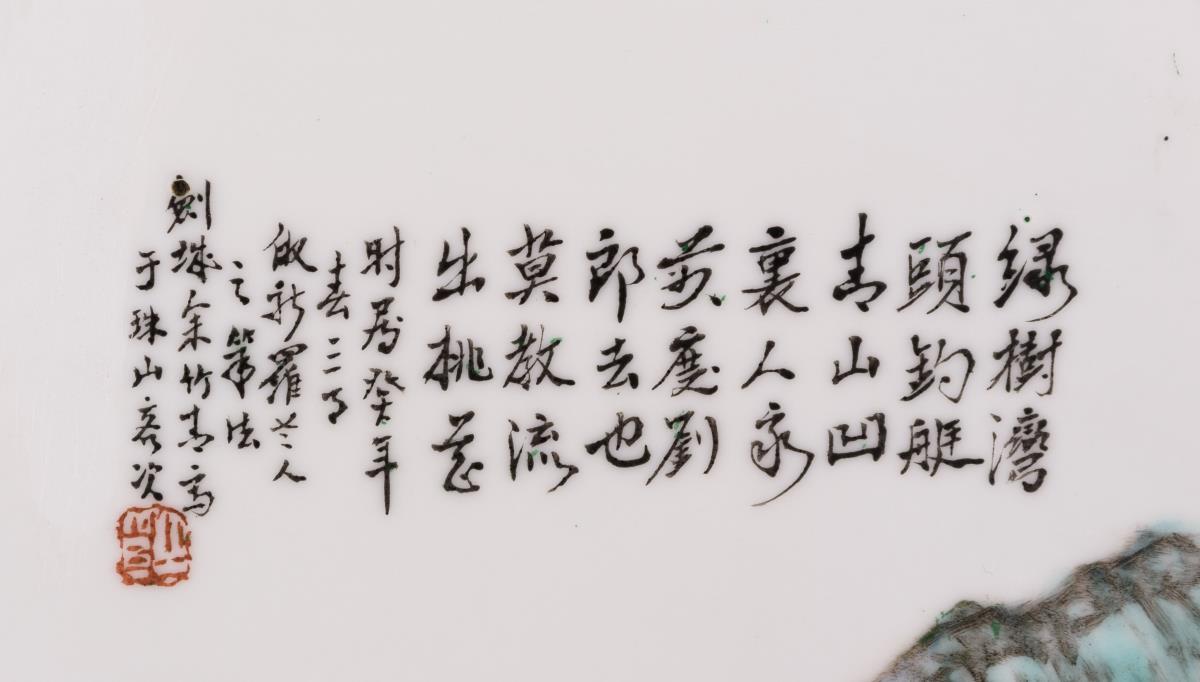 綠樹灣
頭釣艇
青山凹
裏人家
前度劉
郎去也
莫教流
出桃花
時屬癸年
春三月
倣新羅山人
之筆法
劍城余竹青寫
于珠山客次